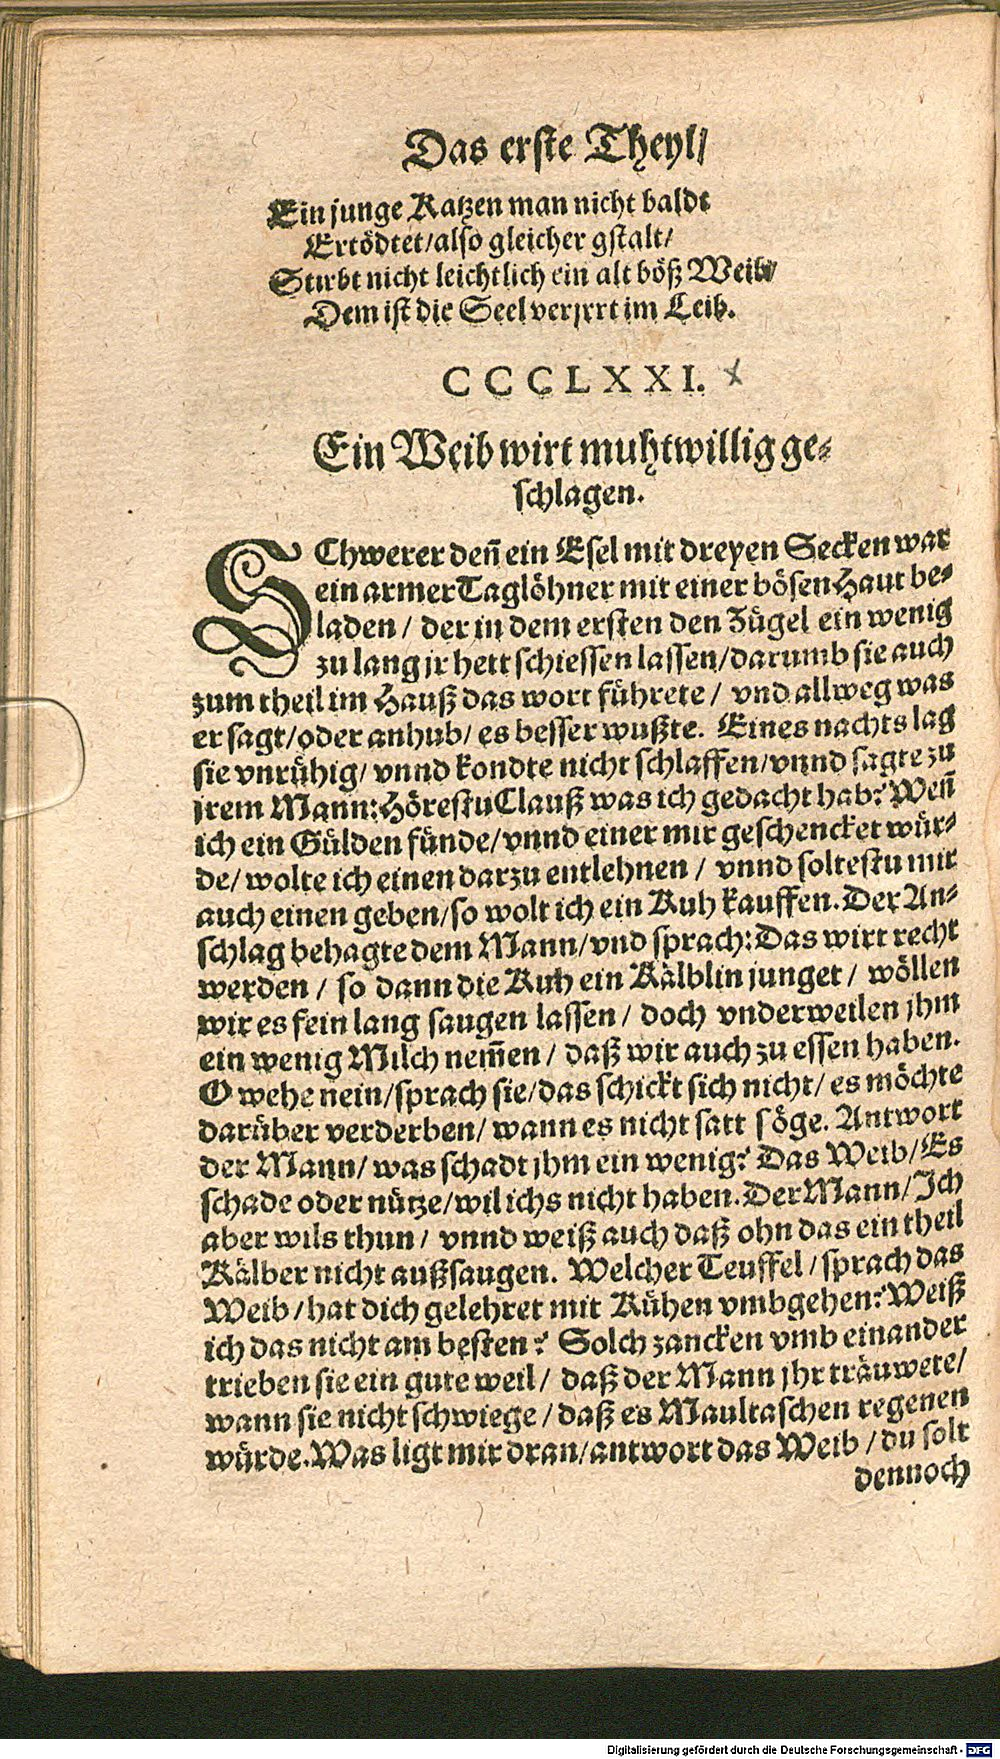 Das erste Theyl/
Ein junge Katzen man nicht baldt
Ertödtet/also gleicher gstalt/
Stirbt nicht leichtlich ein alt böß Weib/
Dem ist die Seel verjrrt im Leib.
CCCLXXI.
Ein Weib wirt muhtwillig ge-
schlagen.
SChwerer deñ ein Esel mit dreyen Secken war
ein armer Taglöhner mit einer bösen Haut be-
laden / der in dem ersten den Zügel ein wenig
zu lang jr hett schiessen lassen/darumb sie auch
zum theil im Hauß das wort führete / vnd allweg was
er sagt/oder anhub/ es besser wußte. Eines nachts lag
sie vnrühig/ vnnd kondte nicht schlaffen/vnnd sagte zu
jrem Mann: Hörestu Clauß was ich gedacht hab? Weñ
ich ein Gülden fünde/vnnd einer mir geschencket wür-
de/ wolte ich einen darzu entlehnen / vnnd soltestu mir
auch einen geben/so wolt ich ein Kuh kauffen. Der An-
schlag behagte dem Mann/vnd sprach: Das wirt recht
werden / so dann die Kuh ein Kälblin junget / wöllen
wir es fein lang saugen lassen / doch vnderweilen jhm
ein wenig Milch nem̄en / daß wir auch zu essen haben.
O wehe nein/sprach sie/das schickt sich nicht/ es möchte
darüber verderben/ wann es nicht satt söge. Antwort
der Mann/ was schadt jhm ein wenig? Das Weib/Es
schade oder nütze/wil ichs nicht haben. Der Mann/Ich
aber wils thun / vnnd weiß auch daß ohn das ein theil
Kälber nicht außsaugen. Welcher Teuffel /sprach das
Weib /hat dich gelehret mit Kühen vmbgehen? Weiß
ich das nicht am besten? Solch zancken vmb einander
trieben sie ein gute weil/ daß der Mann jhr träuwete/
wann sie nicht schwiege /daß es Maultaschen regenen
würde. Was ligt mir dran/antwort das Weib /du solt
dennoch
Digitalisierung gefördert durch die Deutsche Forschungsgemeinschaft - DFG